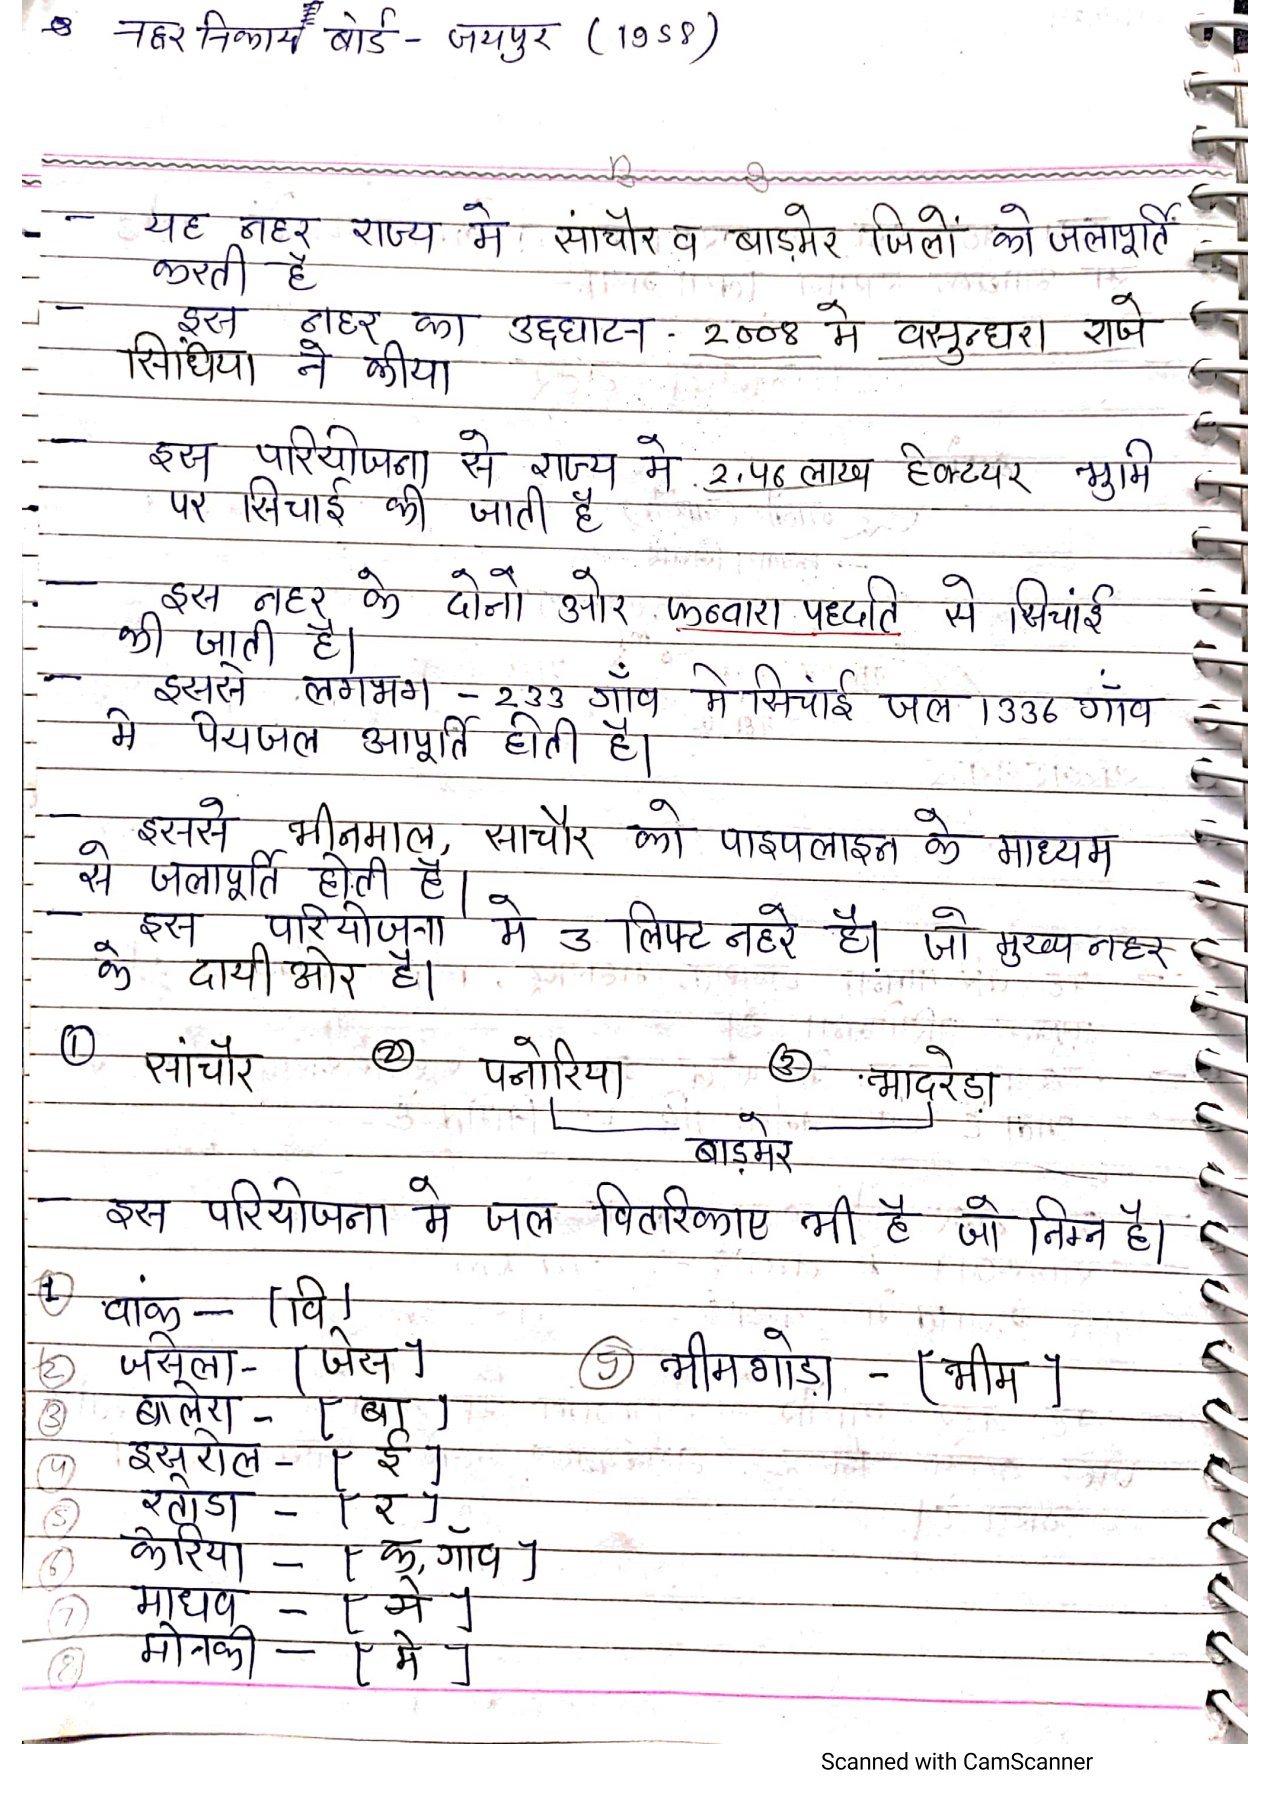 नहर निकाय बोर्ड - जयपुर (1958)
- यह नहर राज्य मे सांचौर व बाड़मेर जिलों को जलापूर्ति
करती है
- इस नहर का उद्दघाटन - 2008 मे वसुन्धरा राजे
सिंधिया ने कीया
- इस परियोजना से राज्य मे 2.46 लाख हेक्टयर भुमि
पर सिचाई की जाती है
- इस नहर के दोनौ ओर फव्वारा पद्दति से सिचांई
की जाती है।
- इससे लगभग - 233 गाँव मे सिचांई जल 1336 गाँव
मे पेयजल आपूर्ति होती है।
- इससे भीनमाल, साचौर को पाइपलाइन के माध्यम
से जलापूर्ति होती है।
- इस परियोजना मे 3 लिफ्ट नहरे है। जो मुख्य नहर
के दायी ओर है।
① सांचौर ② पनोरिया ③ भादरेड़ा
बाड़मेर
- इस परियोजना मे जल वितरिकाए भी है जो निम्न है।
① वांक — [वि]
② जसेला - [जेस] ⑨ भीमगोड़ा - [भीम]
③ बालेरा - [बा]
④ इसरोल - [ई]
⑤ रतोडा - [र]
⑥ केरिया - [क, गाँव]
⑦ माधव - [मे]
⑧ मोनकी - [मे]
Scanned with CamScanner